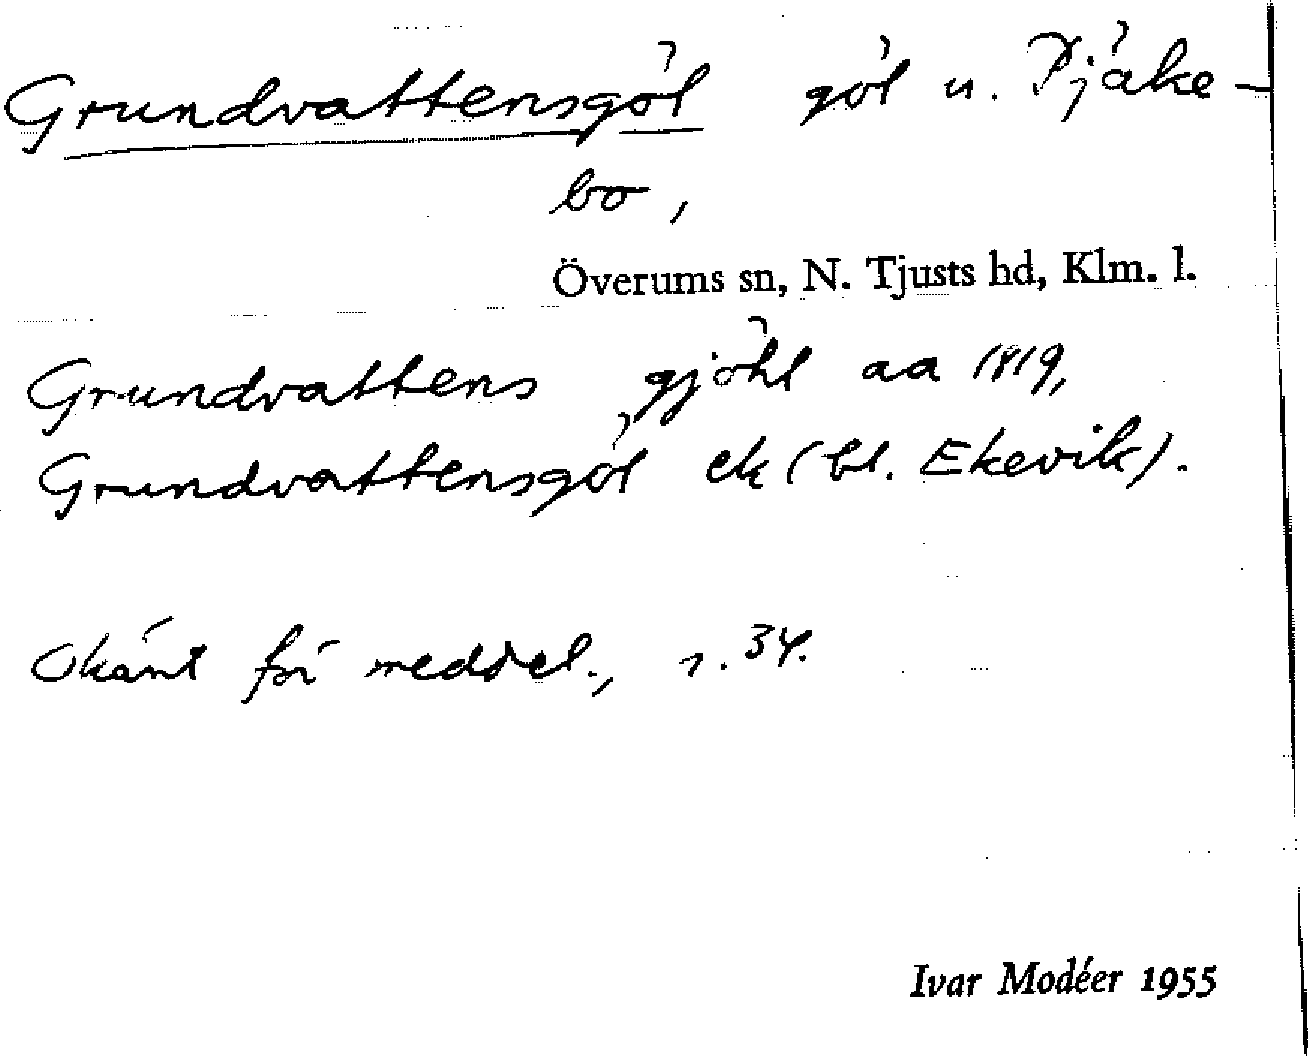 Grundvattensgöl göl u. Pjäke-
bo,
Överums sn, N. Tjusts hd, Klm. l.
Grundvattens gjöhl aa 1819,
Grundvattensgöl ek (bl. Ekevik).
Okänt för meddel., s. 34.
Ivar Modéer 1955